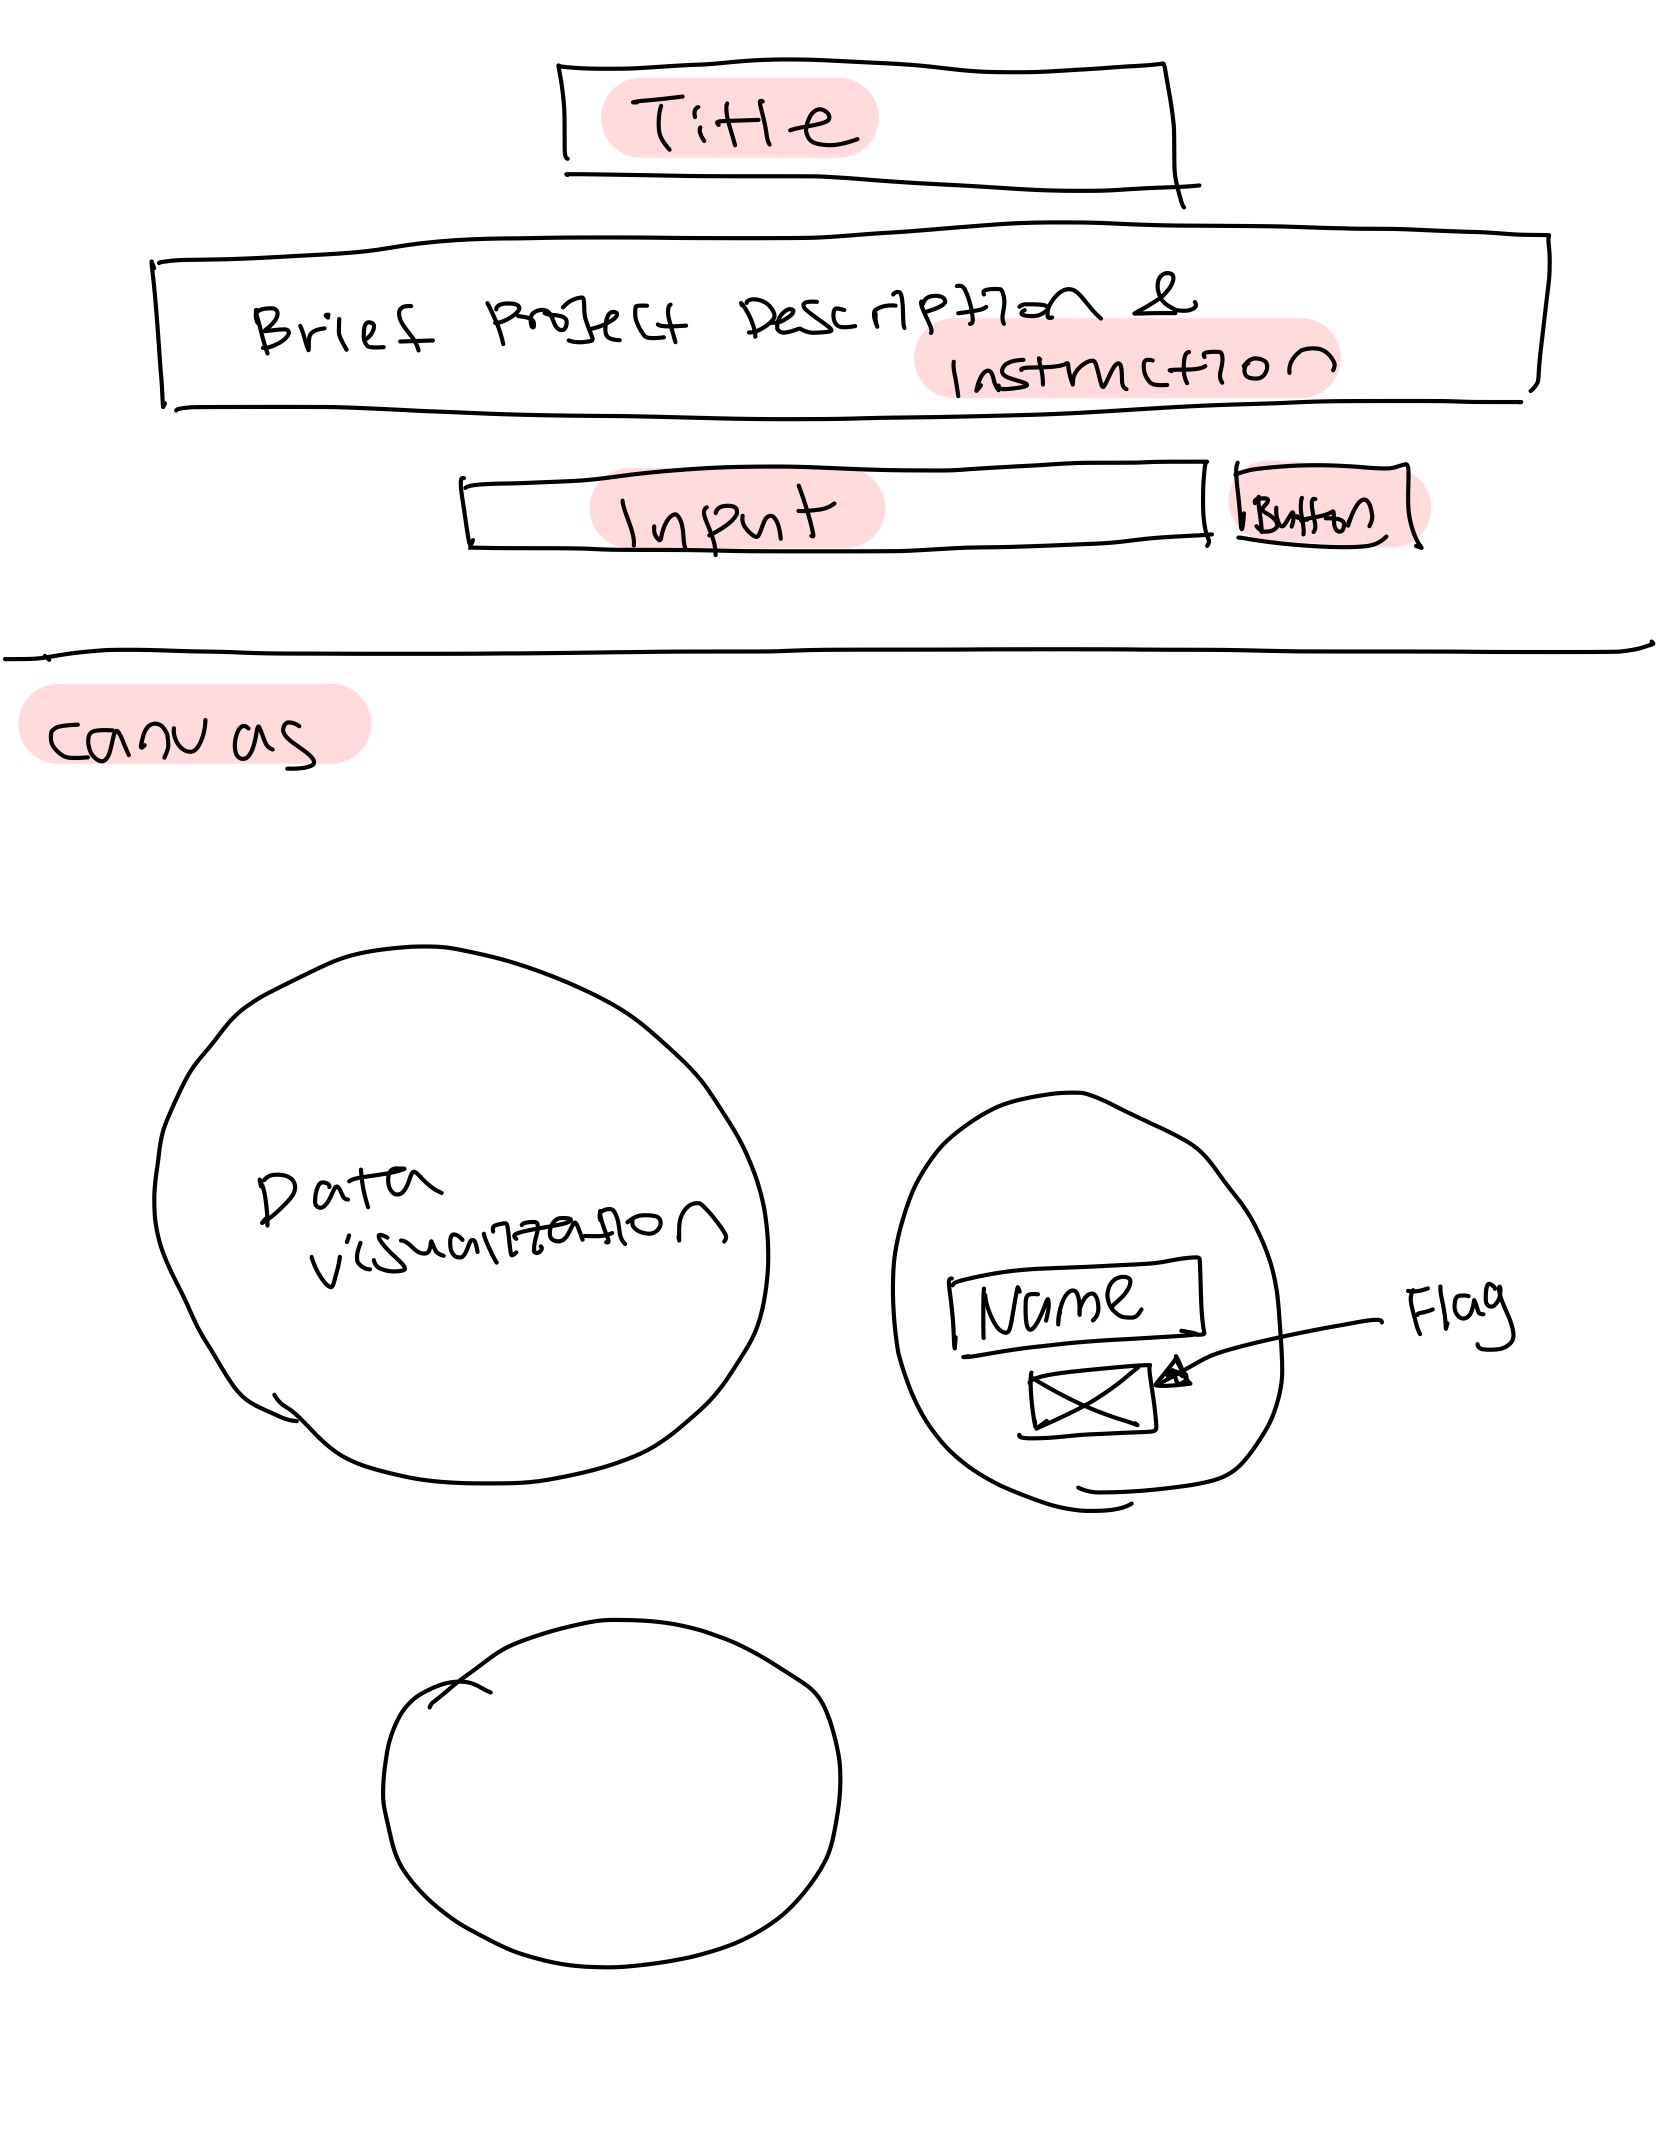 Title
Brief Project Description &
Instruction
Input
Button
Canvas
Data
visualization
Name
Flag